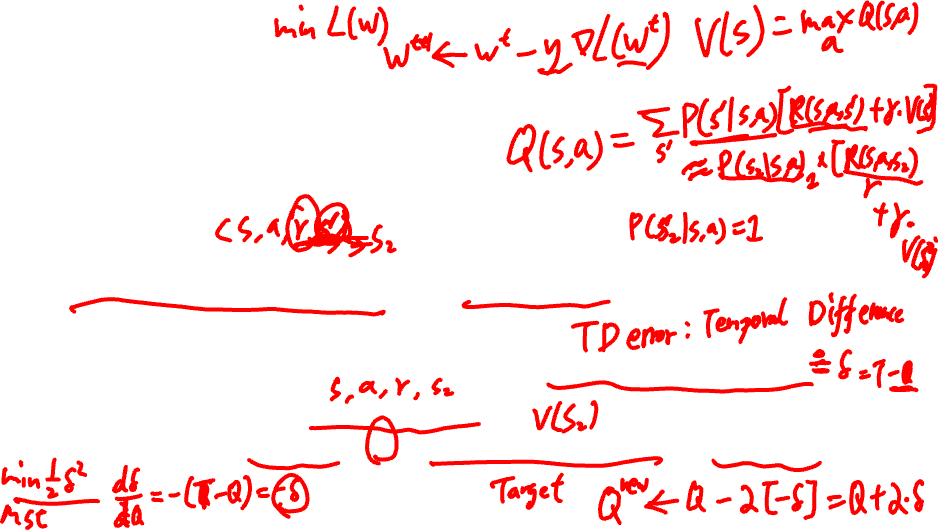 min L(w)
w^{t+1} ← w^t - η ∇L(w^t)
V(s) = max_a Q(s,a)
Q(s,a) = Σ_{s'} P(s'|s,a) [R(s,a,s') + γ·V(s')]
≈ P(s₂|s,a) [R(s,a,s₂)
r
+ γ·
V(s₂)
<s, a, r
s₂
P(s₂|s,a) = 1
TD error : Temporal Difference
≜ δ = T - Q
s, a, r, s₂
V(s₂)
min ½ δ²
MSE
dδ/dQ = -(T - Q) = -δ
Target
Q^{new} ← Q - 2[-δ] = Q + 2·δ